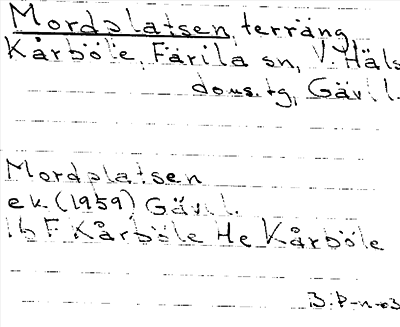 Mordplatsen, terräng
Kårböle, Färila sn, V. Häls
doms.tg, Gävl.
Mordplatsen
ek. (1959) Gävl.
16 F Kårböle He Kårböle